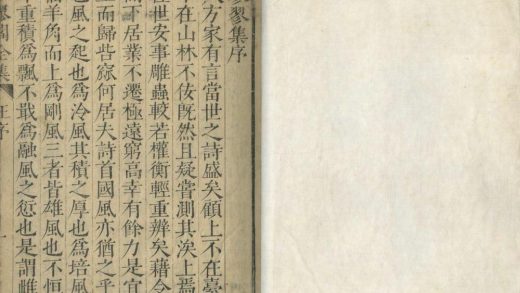 翏集序
方家有言當世之詩盛矣顧上不在臺
不在山林不佞既然且疑嘗測其涘上焉
世安事雕蟲較若權衡輕重辨矣藉令
居葉不遷極遠窮高幸有餘力是宜
而歸呰窳何居夫詩首國風亦猶之乎
也風之起也爲泠風其積之厚也爲培風
羊角而上爲剛風三者皆雄風也不恒
重積爲飄不戢爲融風之愆也是謂雌
翏閣全集 汪序 一